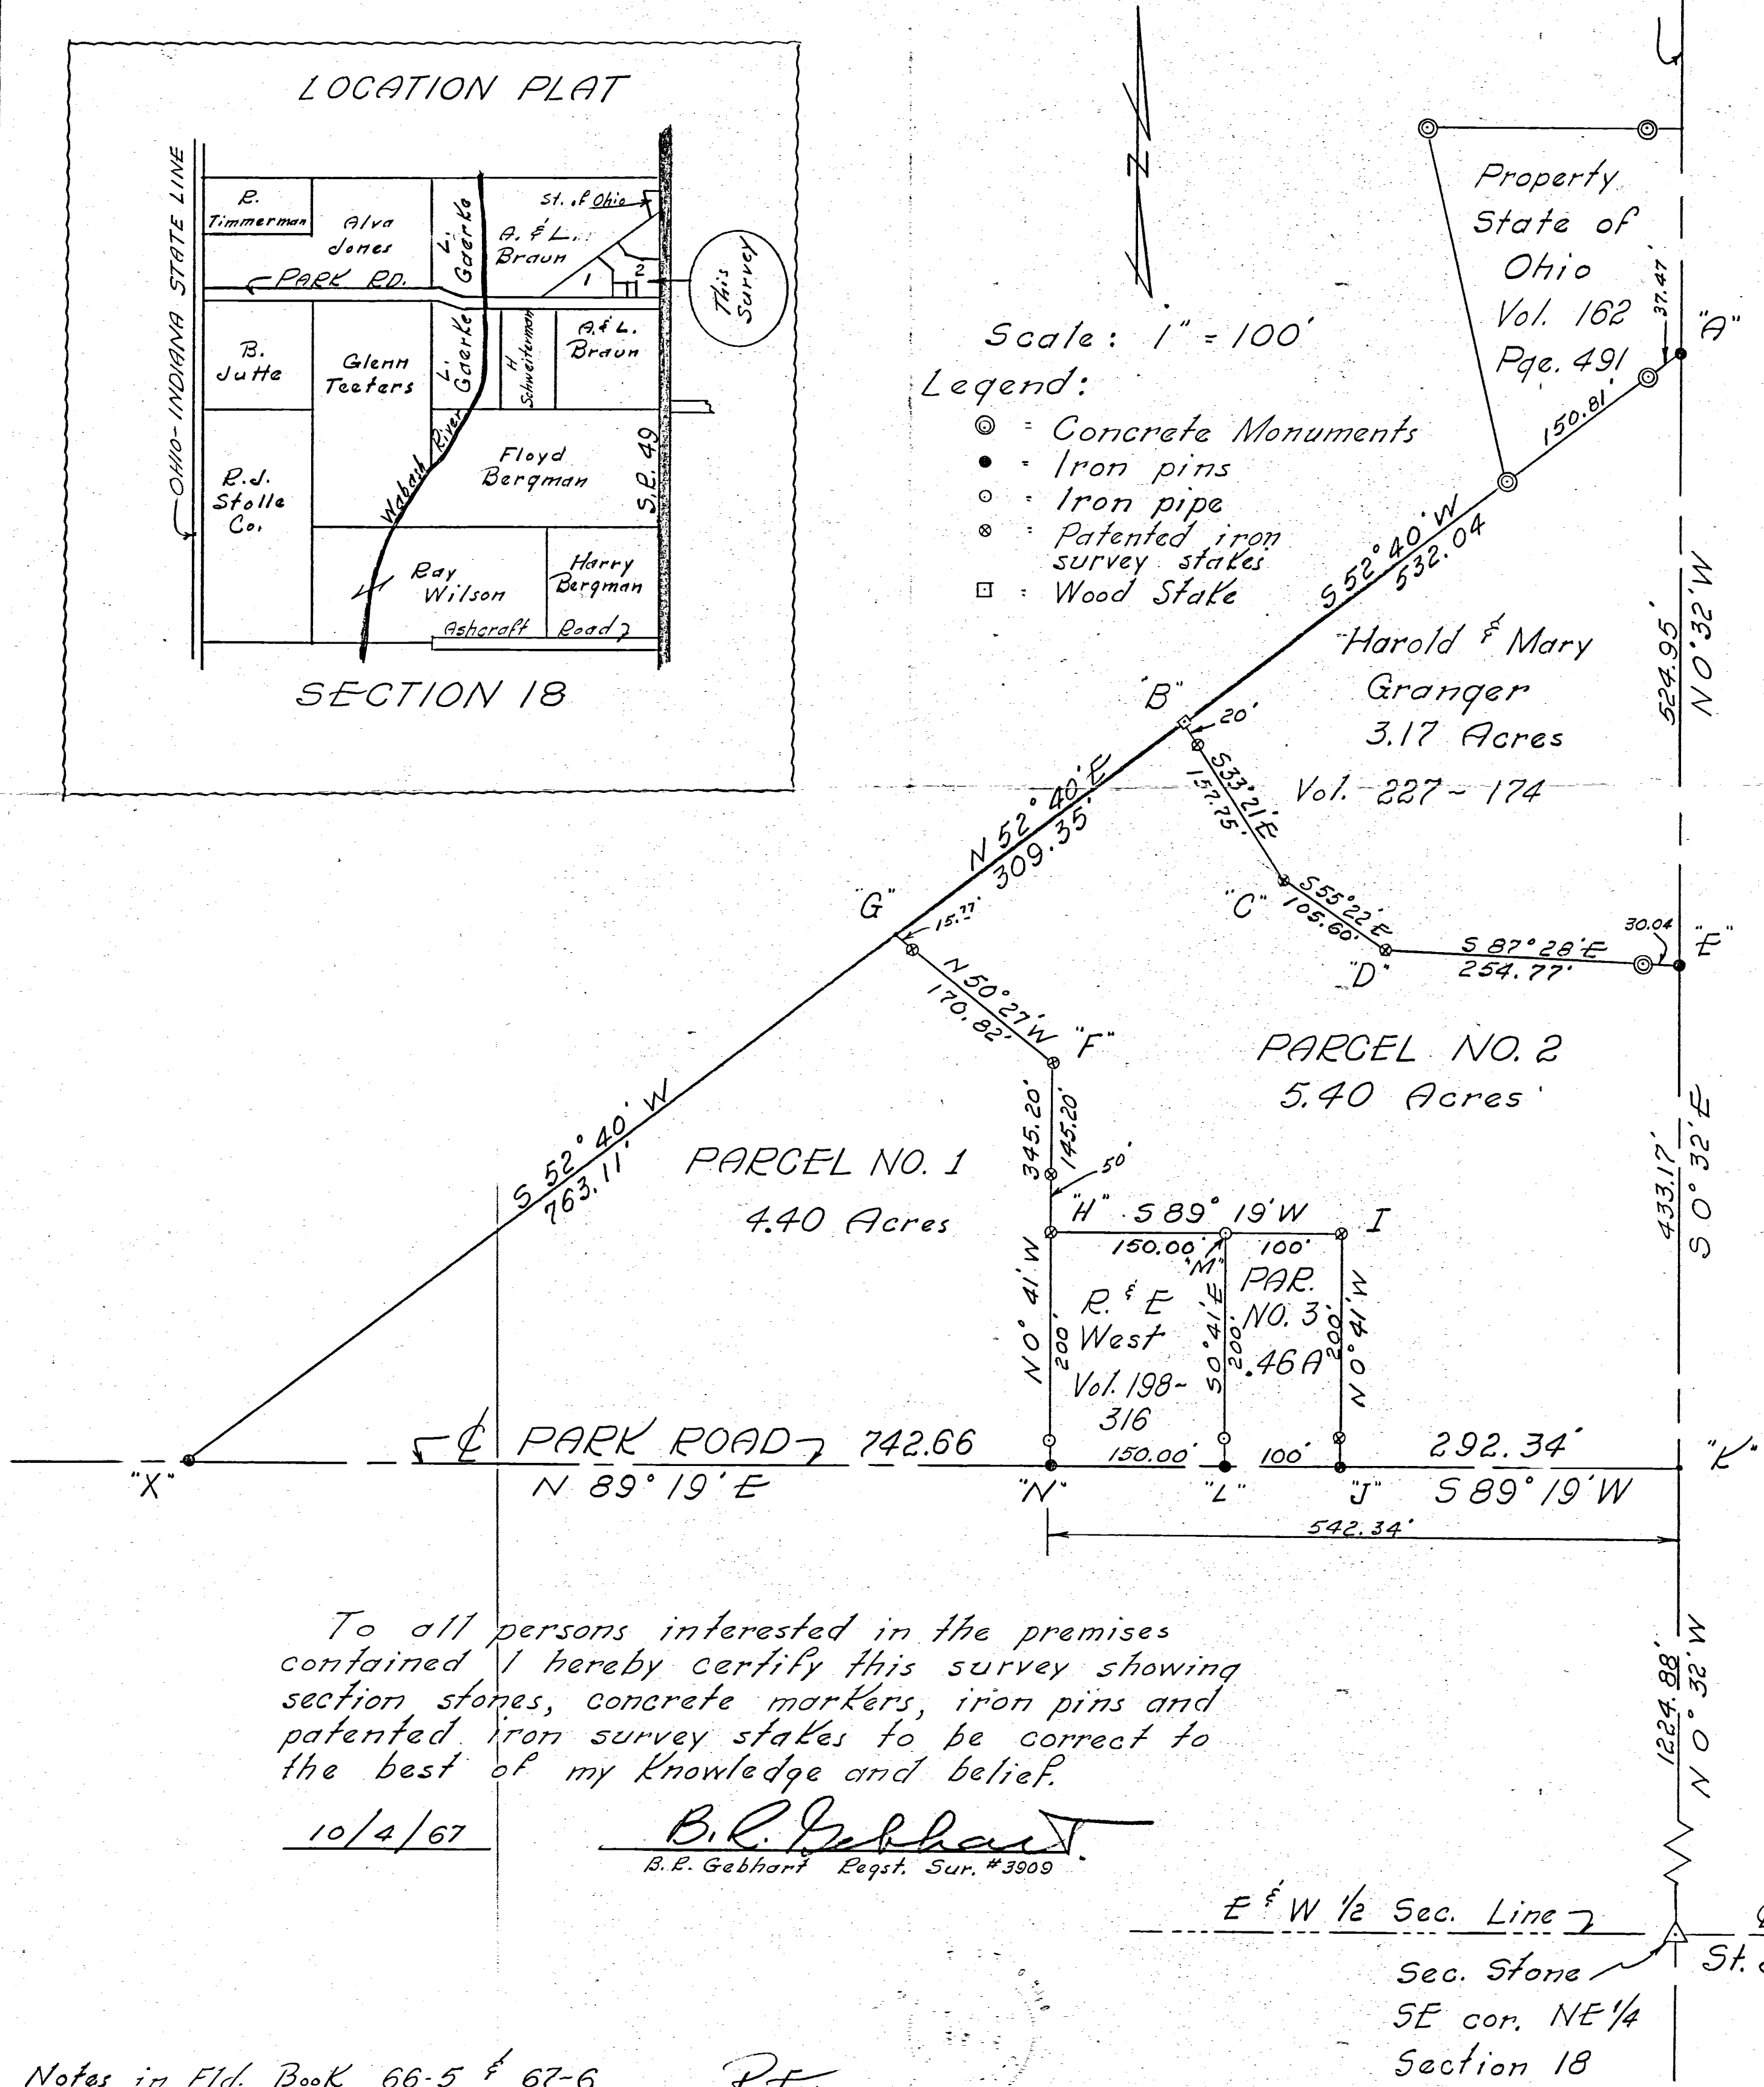 LOCATION PLAT
OHIO-INDIANA STATE LINE
R.
Timmerman
Alva
Jones
L.
Gaerke
St. of Ohio
A. & L.
Braun
PARK RD.
1
2
This
Survey
B.
Jutte
Glenn
Teeters
L.
Gaerke
H
Schweiterman
A. & L.
Braun
R.J.
Stolle
Co.
Wabash River
Floyd
Bergman
S.R. 49
Ray
Wilson
Harry
Bergman
Ashcraft Road
SECTION 18
N
Scale: 1" = 100'
Legend:
= Concrete Monuments
= Iron pins
= Iron pipe
= Patented iron
survey stakes
= Wood Stake
Property
State of
Ohio
Vol. 162
Pge. 491
37.47
"A"
150.81'
S 52° 40' W
532.04
Harold & Mary
Granger
3.17 Acres
Vol. 227 ~ 174
524.95'
N 0° 32' W
"B"
20'
S 33° 21' E
157.75'
N 52° 40' E
309.35'
"G"
15.77'
"C"
S 55° 22' E
105.60'
"D"
S 87° 28' E
254.77'
30.04
"E"
N 50° 27' W
170.82'
"F"
PARCEL NO. 2
5.40 Acres
345.20'
145.20'
50'
433.17'
S 0° 32' E
S 52° 40' W
763.11'
PARCEL NO. 1
4.40 Acres
"H" S 89° 19' W
I
150.00' 100'
"M"
N 0° 41' W
200'
R. & E
West
Vol. 198-
316
S 0° 41' E
200'
PAR.
NO. 3
.46 A
200'
N 0° 41' W
℄ PARK ROAD 742.66
N 89° 19' E
150.00' 100' 292.34'
"X"
"N"
"L"
"J"
S 89° 19' W
"K"
542.34'
To all persons interested in the premises
contained I hereby certify this survey showing
section stones, concrete markers, iron pins and
patented iron survey stakes to be correct to
the best of my knowledge and belief.
10/4/67
B.R. Gebhart
B.R. Gebhart Regst. Sur. #3909
1224.88'
N 0° 32' W
E & W 1/2 Sec. Line
St.
Sec. Stone
SE cor. NE 1/4
Section 18
Notes in Fld. Book 66-5 & 67-6